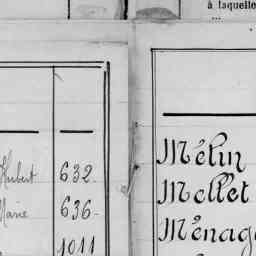 à laquelle
...
Hubert 632
Marie 636
1011
Mélin
Mellet
Ménag